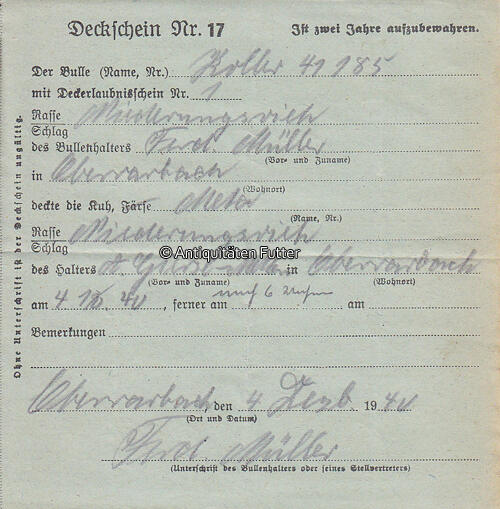 Deckschein Nr. 17 Ist zwei Jahre aufzubewahren.
Der Bulle (Name, Nr.) Koller 41 185
mit Deckerlaubnisschein Nr. 1
Rasse Niederungsvieh
Schlag
des Bullenhalters Ferd. Müller
(Vor- und Zuname)
in Oberwarbach
(Wohnort)
deckte die Kuh, Färse Meta
(Name, Nr.)
Rasse Niederungsvieh
Schlag
© Antiquitäten Futter
des Halters A. in Oberwarbach
(Vor- und Zuname) (Wohnort)
am 4 12. 40, ferner am nach 6 am
Bemerkungen
Oberwarbach, den 4 Dezb. 1940
(Ort und Datum)
Ferd. Müller
(Unterschrift des Bullenhalters oder seines Stellvertreters)
Ohne Unterschrift ist der Deckschein ungültig.